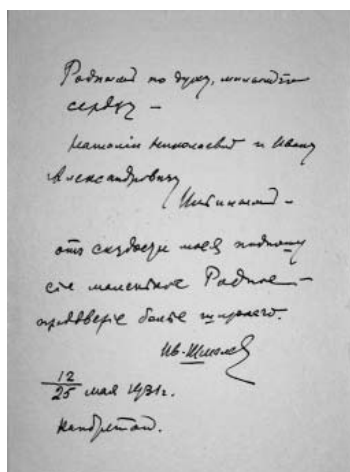 Родным по духу, милым
сердцу –
Наталии Николаевне и Ивану
Александровичу
Ильиным –
отъ скудости моея подношу
сіе маленькое Родное –
преддверіе более широкаго.
Ив. Шмелев
12
25 мая 1931 г.